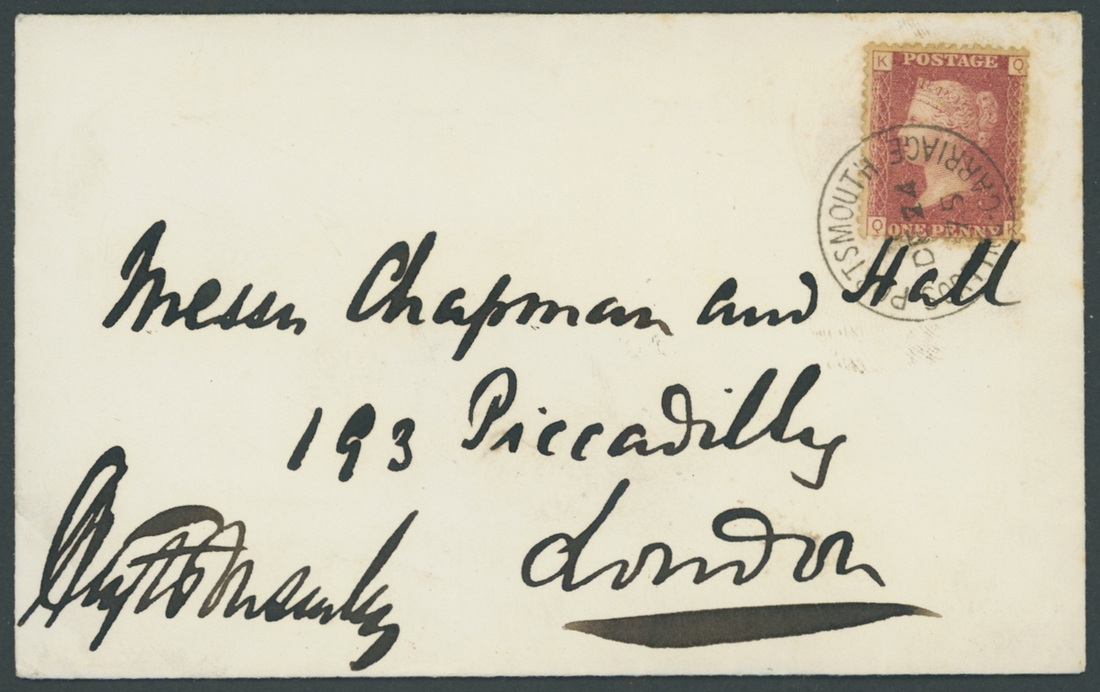 K Q
POSTAGE
Q K
ONE PENNY
PORTSMOUTH
CARRIAGE
DE 24
Messrs Chapman and Hall
193 Piccadilly
London